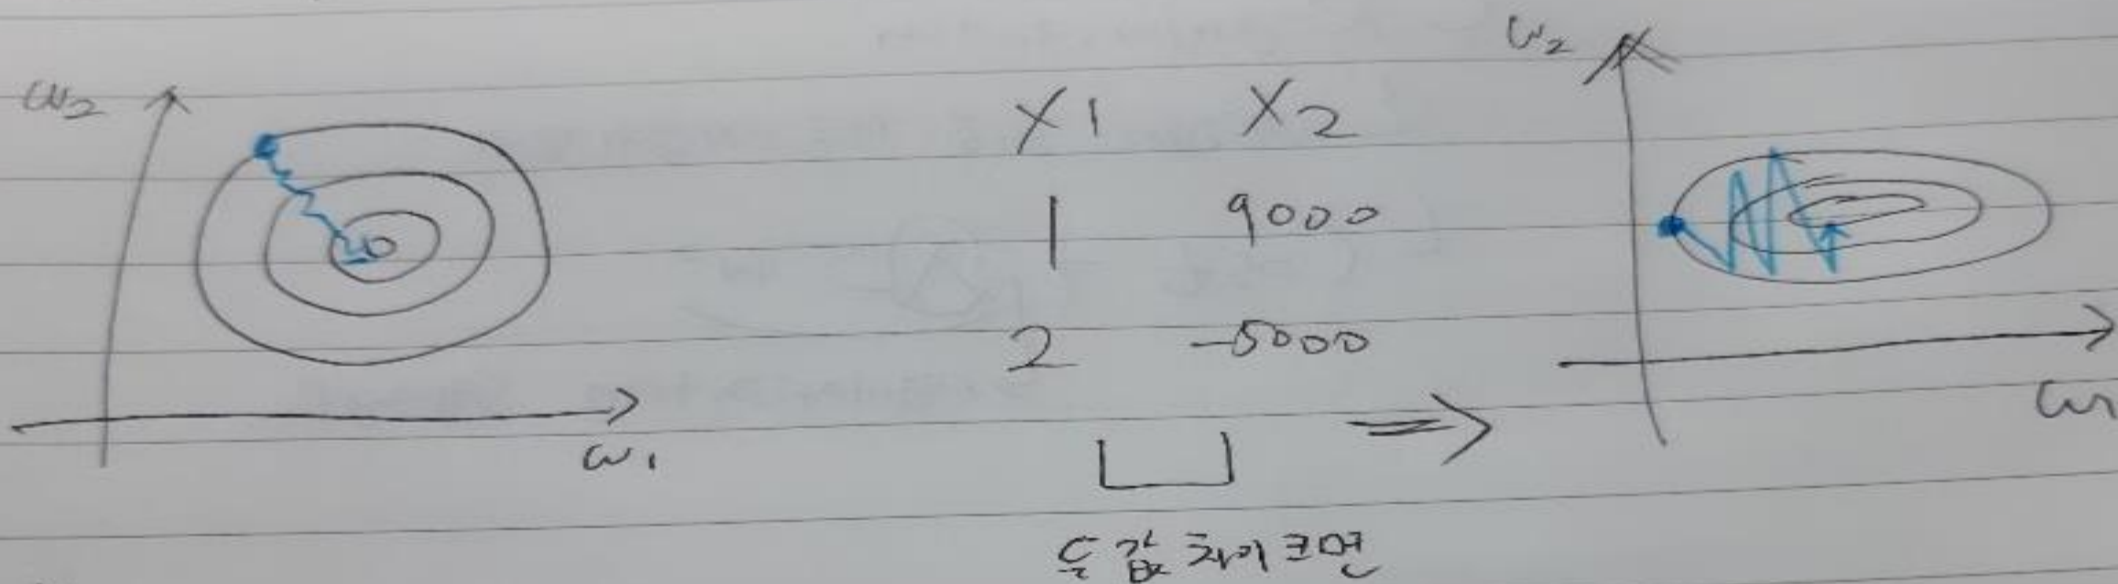 w₂
w₁
X1 X2
1 9000
2 -5000
⇒
두 값 차이 크면
w₂
w₁